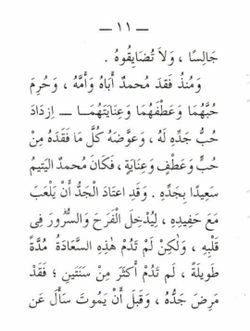 — ١١ —
جَالِسًا ، وَلاَ تُضَايِقُوهُ .
وَمُنْذُ فَقَدَ مُحمدٌ أَبَاهُ وَأُمَّهُ ، وَحُرِمَ
حُبَّهُمَا وَعَطْفَهُمَا وَعِنَايَتَهُمَا — اِزدَادَ
حُبُّ جَدِّهِ لَهُ ، وَعَوَّضَهُ كُلَّ مَا فَقَدَهُ مِنْ
حُبٍّ وَعَطْفٍ وَعِنَايَةٍ ، فَكَانَ مُحمدٌ اليَتيمُ
سَعِيدًا بِجَدِّهِ . وَقَدِ اعتَادَ الْجَدُّ أَنْ يَلْعَبَ
مَعَ حَفِيدِهِ ، لِيُدْخِلَ الْفَرَحَ وَالسُّرُورَ فِى
قَلْبِهِ ، وَلٰكِنْ لَمْ تَدُمْ هٰذِهِ السَّعَادَةُ مُدَّةً
طَوِيلَةً ، لَم تَدُمْ أَكثَرَ مِنْ سَنَتَيْنِ ؛ فَقَدْ
مَرِضَ جَدُّهُ ، وَقَبلَ أَنْ يَمُوتَ سَأَلَ عَن